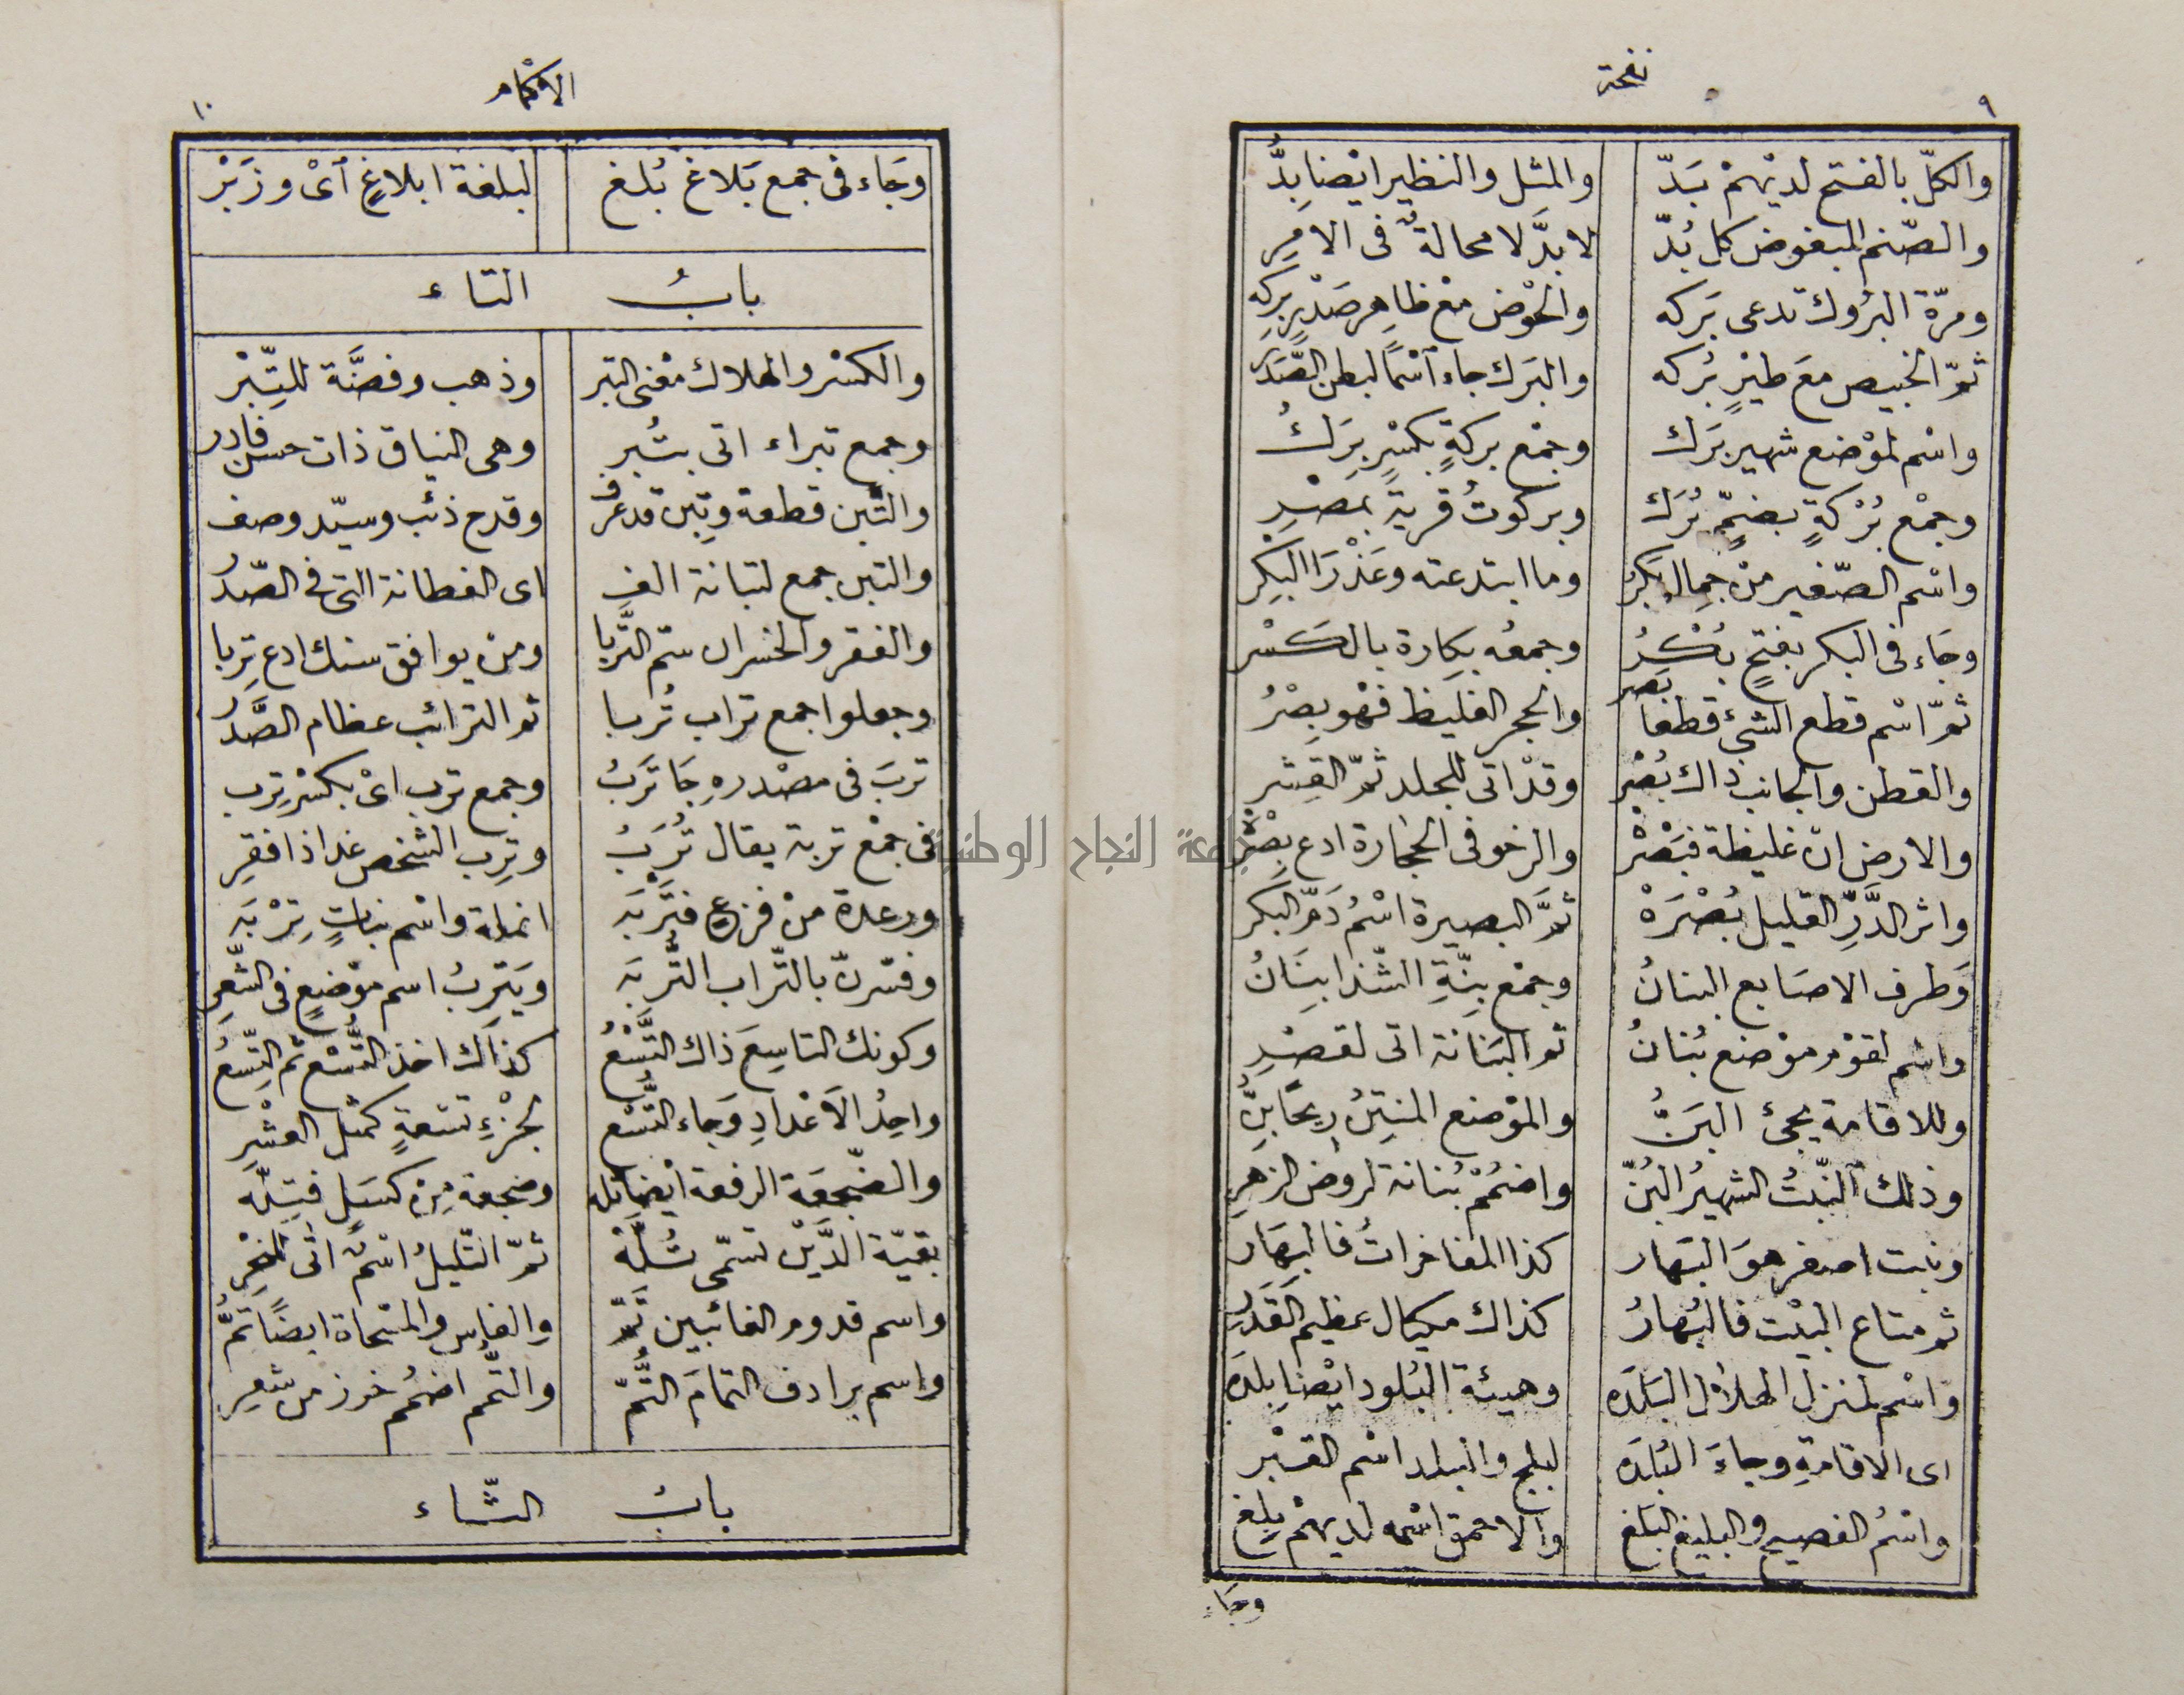 نفحة
٩
والكلّ بالفتح لديْهمْ بَدّ والمثل والنظير ايْضا بِدُّ
والصّنم المبغوض كل بُدّ لا بدَّ لا محالةٌ فى الامِر
ومرّة البرُوك تدعى بَركه والحْوض مع ظاهر صَدْرٍ بِركه
ثمّ الخبيص معَ طيْرٍ بُركه والبَرك جاء آسْمًا لبطن الصَّدْر
واسْم لموْضع شهير بَرَك وجمْع بركةٍ بكسْرٍ بِرَكُ
وجمْع بُرْكةٍ بضمٍّ بُرَك وبركوتُ قريةٌ بمصْرِ
واسْم الصّغير منْ جِمال بَكرُ وما ابتدعته وعَذْرَا البِكر
وجَاء فى البكر بفتحٍ بُكْرُ وجمعُه بِكارة بالكسْر
ثمّ اسْم قطع الشئ قطعًا بَصر والحجر الغليظ فهْو بِصْرُ
والقطن والجانب ذاك بُصْر وقدْ اتى للجلد ثمّ القِشر
والارض انْ غليظة فبَصْرْ والرخو فى الحِجارة ادع بِصْرة
واثر الدَّرِّ القليل بُصْرَهْ ثمَّ البصيرة اسْمُ دَمّ البكر
وَطرف الاصَابع البنانُ وجمْع بِنّةِ الشّذا بِنَانُ
واسْم لقوْم موْضع بُنانُ ثم البَنانة اتى لقصْرِ
وللاقامة يجئ البَنُّ والموْضع المنتِنُ رِيحًا بِنُّ
وذلك النّبتُ الشهيرُ البُنّ واضمُمْ بُنانة لروْض الزهرِ
ونبت اصفر هوَ البَهار كذا المفاخراتُ فالبِهَار
ثم متاع البيْت فالبُهارُ كذاك مكيال عظيم القَدَرِ
وَاسْم لمنزل الهلال البَلدَه وهيئة البُلود ايْضا بِلدَه
اى الاقامةِ وجاءَ البُلدَه لبلج والبلد اسْم القبْر
واسْمُ الفصيح والبليغ البَلغ والاحمق اسْمه لديهمْ بِلغ
وجَاء
الاكمام
١٠
وجَاء فى جمع بَلاغ بُلغ لبلغة ابلاغٍ آىْ وزَبْر
بابُ التاء
والكسْر والهلاك معْنى التبر وذهب وفضَّة للتِّبْر
وجمع تبراء اتى بتُبر وهى النياق ذات حسن فادر
والتَّبن قطعة وتِبن قد عرف وقدح ذئب وسيّد وصف
والتبن جمع لتبانة الف اى الفطانة التى فى الصّدْر
والفقر والخسران سَمّ التَّربا ومنْ يوافق سنك ادع تِربا
وجعلوا جمع تراب تُربا ثم الترائب عظام الصَّدْر
تربَ فى مصْدرهِ جَا تَرَبُ وجمع ترب اىْ بكسْرٍ تِرب
فى جمْع تربة يقال تُرَبُ وتِرب الشخص غدا ذا فقِر
ورعدة منْ فزعٍ فتَرْبَه انملة واسْم نباتٍ تِرْبَه
وفسّرنّ بالتّراب التُّربَه ويَترِبُ اسم موْضعٍ فى الشّعِر
وكونك التاسِعَ ذاك التَّسْعُ كذاك اخذ التُّسْع ثم التِّسْعُ
واحِدُ الاَعْدادِ وَجاء التُّسْع لجزْءِ تسْعةٍ كمثل العشْرِ
والضّجعَة الرقعة ايضا تَله وضجعة مِنْ كسَلٍ فتِلّه
بقيّة الدَّيْن تسمّى تُلّهْ ثمّ التّليلُ اسْمٌ اتى للنحْرِ
واسم قدوم الغائبين تَمّ والفاس والمسْحاة ايضًا تِمُّ
واسم يرادف التمامَ التُّمّ والتُّمم اضمُم خرز من شعِر
بابُ الثّاء